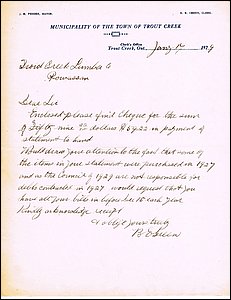 MUNICIPALITY OF THE TOWN OF TROUT CREEK
Clerk's Office
Trout Creek, Ont., Jany 1929
Trout Creek Lumber Co
Powassan
Dear Sir
Enclosed please find Cheque for the sum
of Eighty nine dollars $89.22 in payment of
statement to hand
your attention to the fact that some of
the items in your statement were purchased in 1927
and as the Council of 1929 are not responsible for
debts contracted in 1927 would request that you
have all your bills in before Dec 15 each year
Kindly acknowledge receipt
& oblige yours truly